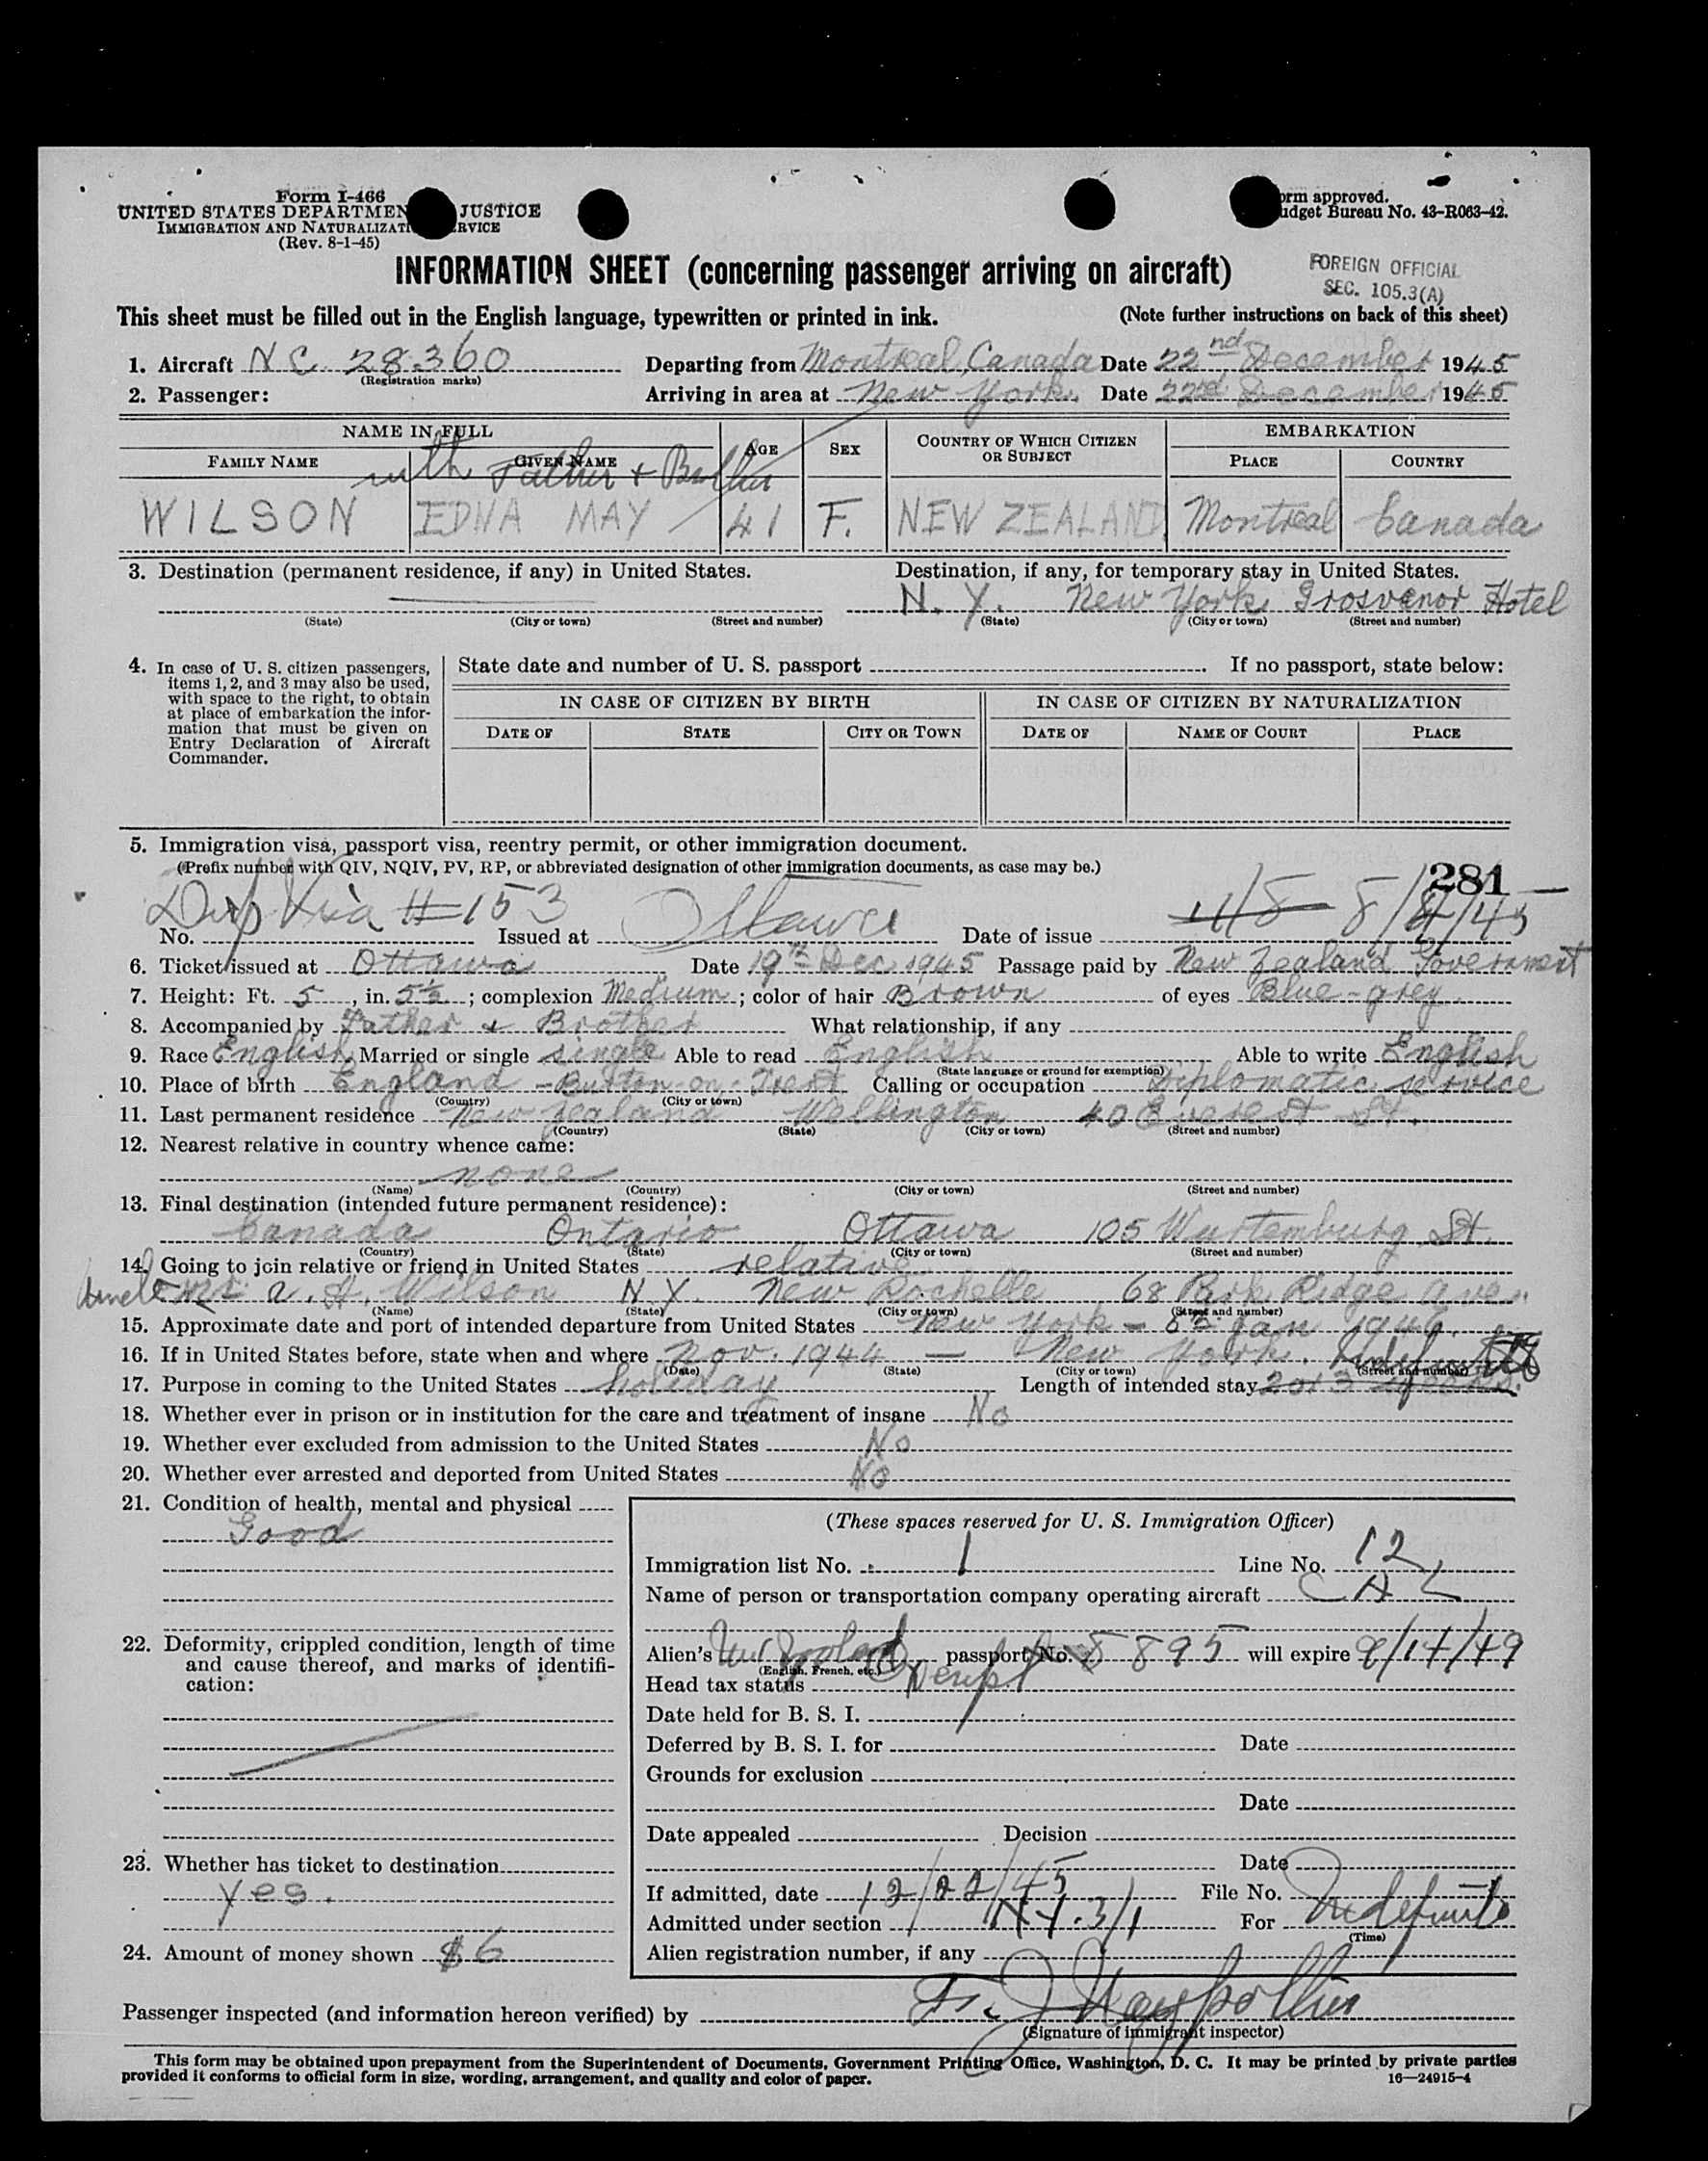 Form I-466
UNITED STATES DEPARTMEN JUSTICE
IMMIGRATION AND NATURALIZATI RVICE
(Rev. 8-1-45)
orm approved.
udget Bureau No. 43-R063-42.
INFORMATION SHEET (concerning passenger arriving on aircraft)
FOREIGN OFFICIAL
SEC. 105.3(A)
This sheet must be filled out in the English language, typewritten or printed in ink. (Note further instructions on back of this sheet)
1. Aircraft NC 28360 Departing from Montreal, Canada Date 22nd December 1945
(Registration marks)
2. Passenger: Arriving in area at New York. Date 22nd December 1945
NAME IN FULL AGE SEX COUNTRY OF WHICH CITIZEN OR SUBJECT EMBARKATION
FAMILY NAME GIVEN NAME PLACE COUNTRY
with Father + Brother
WILSON EDNA MAY 41 F. NEW ZEALAND Montreal Canada
3. Destination (permanent residence, if any) in United States. Destination, if any, for temporary stay in United States.
N.Y. New York Grosvenor Hotel
(State) (City or town) (Street and number) (State) (City or town) (Street and number)
4. In case of U. S. citizen passengers, items 1, 2, and 3 may also be used, with space to the right, to obtain at place of embarkation the information that must be given on Entry Declaration of Aircraft Commander.
State date and number of U. S. passport . If no passport, state below:
IN CASE OF CITIZEN BY BIRTH IN CASE OF CITIZEN BY NATURALIZATION
DATE OF STATE CITY OR TOWN DATE OF NAME OF COURT PLACE
5. Immigration visa, passport visa, reentry permit, or other immigration document.
(Prefix number with QIV, NQIV, PV, RP, or abbreviated designation of other immigration documents, as case may be.)
281
No. Dip Visa #153 Issued at Ottawa Date of issue 11/8 8/4/45
6. Ticket issued at Ottawa Date 19th Dec 1945 Passage paid by New Zealand Government
7. Height: Ft. 5, in. 5½; complexion Medium; color of hair Brown of eyes Blue-grey
8. Accompanied by Father & Brother What relationship, if any
9. Race English Married or single single Able to read English Able to write English
(State language or ground for exemption)
10. Place of birth England - Burton-on-Trent Calling or occupation Diplomatic service
(Country) (City or town)
11. Last permanent residence New Zealand Wellington 40 Everest St.
(Country) (State) (City or town) (Street and number)
12. Nearest relative in country whence came:
none
(Name) (Country) (City or town) (Street and number)
13. Final destination (intended future permanent residence):
Canada Ontario Ottawa 105 Wurtemburg St.
(Country) (State) (City or town) (Street and number)
14. Going to join relative or friend in United States relative
Uncle Mr. A. H. Wilson N.Y. New Rochelle 68 Park Ridge Ave.
(Name) (State) (City or town) (Street and number)
15. Approximate date and port of intended departure from United States New York - 8th Jan 1946.
16. If in United States before, state when and where Nov. 1944 — New York. Indefinite
(Date) (State) (City or town) (Street and number)
17. Purpose in coming to the United States holiday Length of intended stay 2 or 3 weeks.
18. Whether ever in prison or in institution for the care and treatment of insane No
19. Whether ever excluded from admission to the United States No
20. Whether ever arrested and deported from United States No
21. Condition of health, mental and physical
Good
22. Deformity, crippled condition, length of time and cause thereof, and marks of identification:
23. Whether has ticket to destination
Yes.
24. Amount of money shown $6
(These spaces reserved for U. S. Immigration Officer)
Immigration list No. 1 Line No. 12
Name of person or transportation company operating aircraft CAL
Alien's New Zealand passport No. 5895 will expire 9/14/49
(English, French, etc.)
Head tax status Exempt
Date held for B. S. I.
Deferred by B. S. I. for Date
Grounds for exclusion
Date
Date appealed Decision
Date
If admitted, date 12/22/45 File No.
Admitted under section For Indefinite
(Time)
Alien registration number, if any
Passenger inspected (and information hereon verified) by
(Signature of immigrant inspector)
This form may be obtained upon prepayment from the Superintendent of Documents, Government Printing Office, Washington, D. C. It may be printed by private parties
provided it conforms to official form in size, wording, arrangement, and quality and color of paper. 16—24915-4